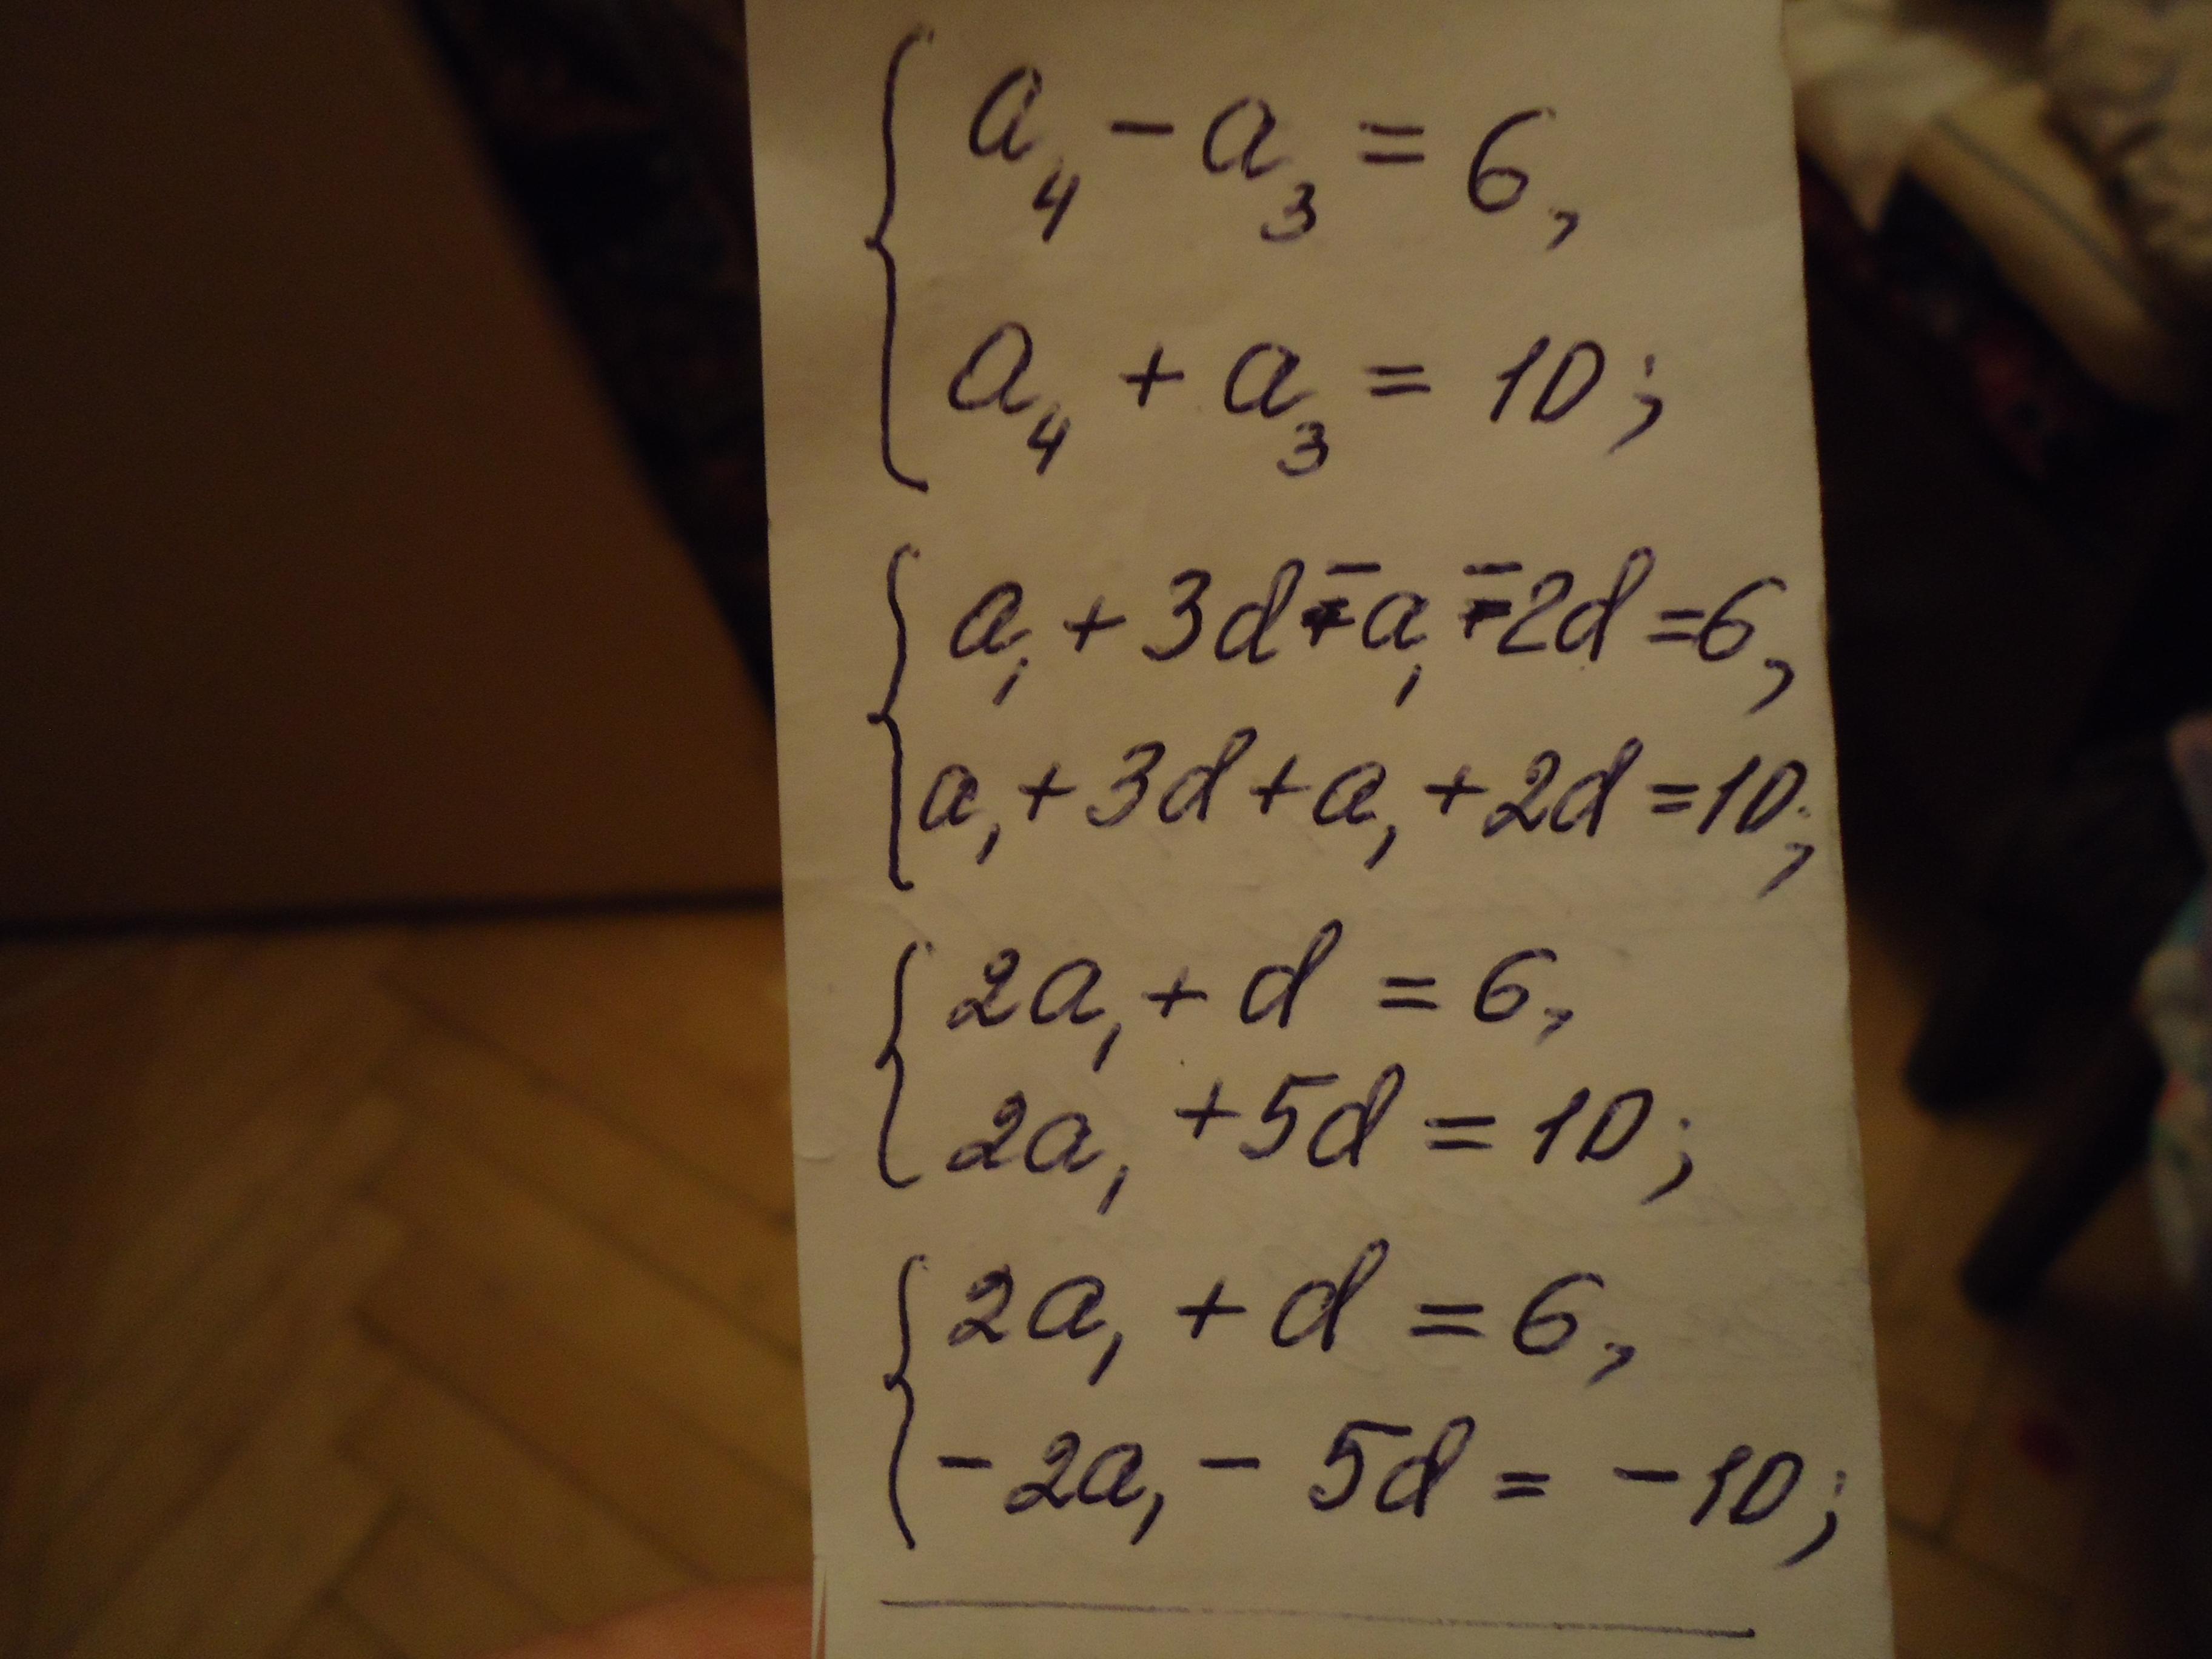 a₄ - a₃ = 6,
a₄ + a₃ = 10;
a₁ + 3d - a₁ - 2d = 6,
a₁ + 3d + a₁ + 2d = 10;
2a₁ + d = 6,
2a₁ + 5d = 10;
2a₁ + d = 6,
- 2a₁ - 5d = - 10;